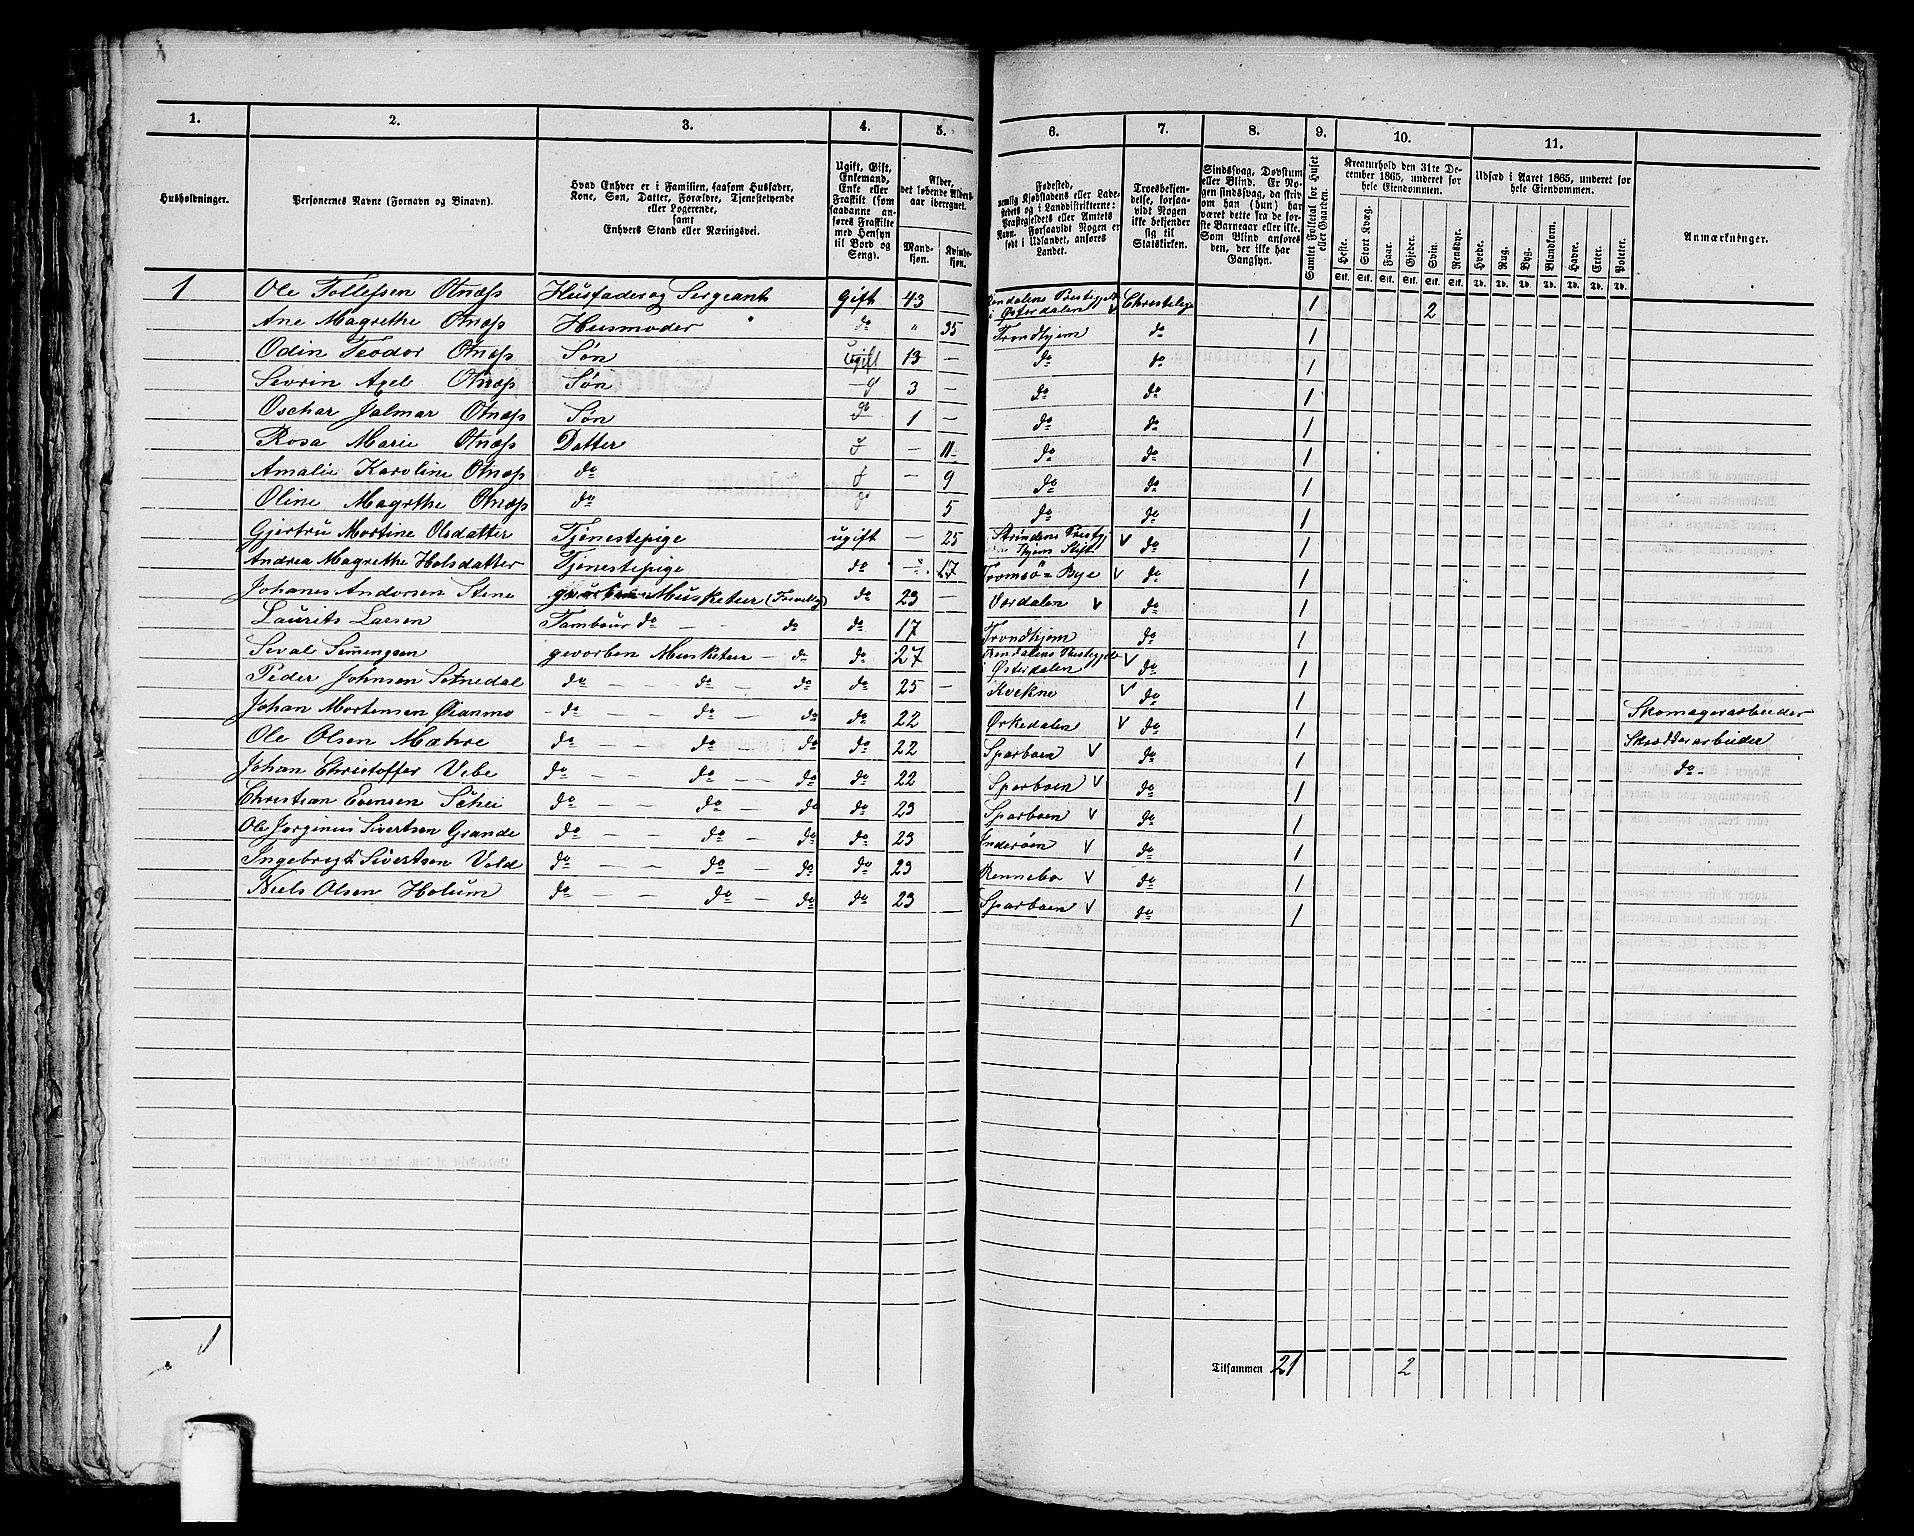 1. 2. 3. 4. 5. 6. 7. 8. 9. 10. 11.
Husholdninger.
Personernes Navne (Fornavn og Binavn).
Hvad Enhver er i Familien, saasom Husfader, Kone, Søn, Datter, Forældre, Tjenestetyende eller Logerende, samt Enhvers Stand eller Næringsvei.
Ugift, Gift, Enkemand, Enke eller Fraskilt (som saadanne anføres Fraskilte med Hensyn til Bord og Seng).
Alder, det løbende Aldersaar iberegnet.
Mandkjøn. Kvindekjøn.
Fødested, nemlig Kjøbstadens eller Ladestedets og i Landdistrikterne: Præstegjeldets eller Amtets Navn. Forsaavidt Nogen er født i Udlandet, anføres Landet.
Troesbekjendelse, forsaavidt Nogen ikke bekjender sig til Statskirken.
Sindssvag, Døvstum eller Blind. Er Nogen sindssvag, da skrives om han (hun) har været dette fra de første Barneaar eller ikke. Som Blind anføres den, der ikke har Gangsyn.
Samlet Folketal for Huset eller Gaarden.
Kreaturhold den 31te December 1865, underet for hele Eiendommen.
Heste. Stort Kvæg. Faar. Gjeder. Svin. Rensdyr.
Stk. Stk. Stk. Stk. Stk. Stk.
Udsæd i Aaret 1865, underet for hele Eiendommen.
Hvede. Rug. Byg. Blandkorn. Havre. Erter. Poteter.
Td. Td. Td. Td. Td. Td. Td.
Anmærkninger.
1 Ole Tollefsen Otnæss Husfader og Sergeant Gift 43 Rendalens Præstegjeld i Østerdalen v Christelige 1 2
Ane Magrethe Otnæss Husmoder do " 35 Trondhjem do 1
Odin Teodor Otnæss Søn Ugift 13 — do do 1
Sevrin Axel Otnæss Søn 3 — do do 1
Oschar Jalmar Otnæss Søn do 1 — do do 1
Rosa Marie Otnæss Datter — 11 do do 1
Amalie Karoline Otnæss do — 9 do do 1
Oline Magrthe Otnæss do 5 do do 1
Gjertru Martine Olsdatter Tjenestepige ugift — 25 Strindens Præstegj v do 1
Andrea Magrethe Holsdatter Tjenestepige do — 17 Tromsö Bye v do 1
Johanes Andorsen Stene gevorben Musketeer (Frivillig) do 23 — Værdalen v do 1
Laurits Larsen Tambour do — do do 17 Trondhjem do 1
Seval Semingsen gevorben Musketeer — do do 27 Rendalens Præstegjeld i Østerdalen v do 1
Peder Johnsen Setnedal do — do — do do 25 — Kvekne v do 1
Johan Mortensen Øianmo do — do — do do 22 Ørkedalen v do 1 Skomagerarbeider
Ole Olsen Mæhre do — do — do do 22 Sparboen v do 1 Skrædderarbeider
Johan Christoffer Vebe do — do — do do 22 Sparboen v do 1 do
Christian Evensen Schei do — do — do do 23 Sparboen v do 1
Ole Jørginus Sivertsen Grande do — do — do do 23 Inderøen v do 1
Ingebrigt Sivertsen Vold do — do — do do 23 Rennebo v do 1
Niels Olsen Holum do — do — do do 23 Sparboen v do 1
1 Tilsammen 21 2